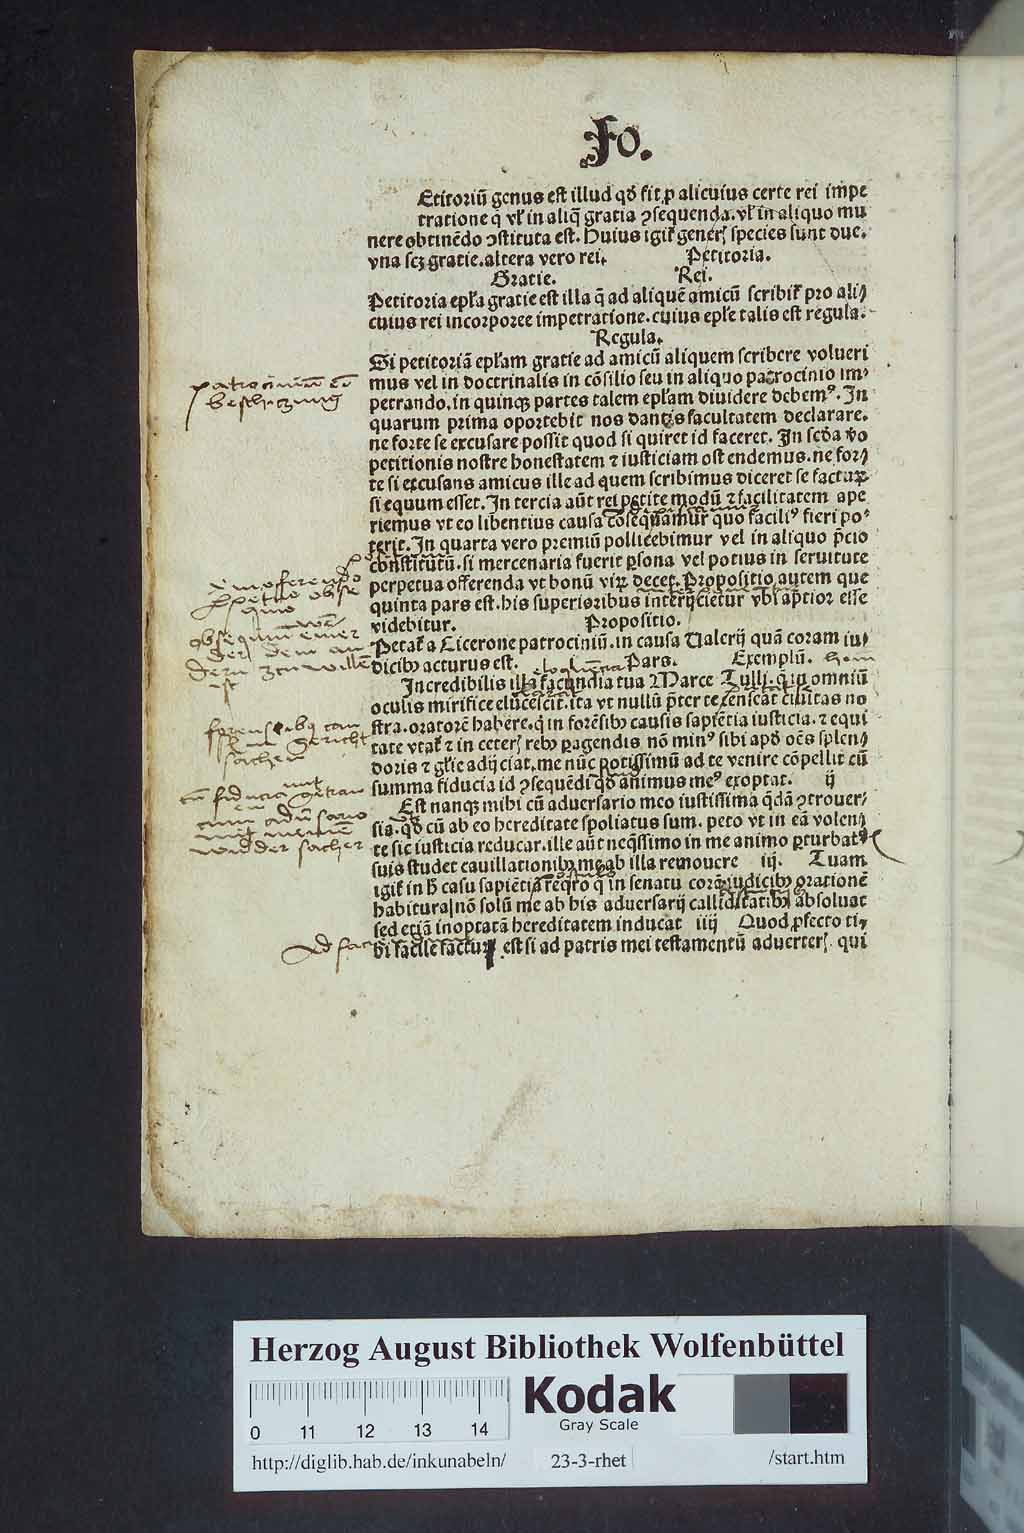 Fo.
Etitoriū genus est illud qď fit ꝑ alicuius certe rei impe
tratione q̄ vl' in aliq̄ gratia ꝯsequenda. vl' in aliquo mu
nere obtinēdo ꝯstituta est. Huius igit̄ gener̄ species sunt due.
vna scꝫ gratie. altera vero rei. Petitoria.
Gratie. Rei.
Petitoria epl'a gratie est illa q̄ ad aliquē amicū scribit̄ pro ali⸗
cuius rei incorporee impetratione. cuius epl'e talis est regula.
Regula.
Si petitoriā epl'am gratie ad amicū aliquem scribere volueri
mus vel in doctrinalis in cōsilio seu in aliquo patrocinio im⸗
petrando. in quinqꝫ partes talem epl'am diuidere debemꝰ. In
quarum prima oportebit nos dantis facultatem declarare.
ne forte se excusare possit quod si quiret id faceret. In scďa v̄o
petitionis nostre honestatem ⁊ iusticiam ostendemus. ne for⸗
te si excusans amicus ille ad quem scribimus diceret se facturꝝ
si equum esset. In tercia aūt rei petite modū ⁊ facilitatem ape
riemus vt eo libentius causa cōsequamur quo faciliꝰ fieri po⸗
terit. In quarta vero premiū pollicebimur vel in aliquo p̄cio
constitutū. si mercenaria fuerit ꝑsona vel potius in seruitute
perpetua offerenda vt bonū virꝝ decet. Propositio autem que
quinta pars est. his superioribus interijcietur vbi aptior esse
videbitur. Propositio.
Petat̄ a Cicerone patrociniū. in causa Valerij quā coram iu⸗
dicibꝫ acturus est. Pars. Exemplū.
Incredibilis illa facundia tua Marce Tulli. q̄ in omniū
oculis mirifice elucescit. ita vt nullū p̄ter te censeat ciuitas no
stra. oratorē habere. q̄ in forēsibꝫ causis sapiētia iusticia. ⁊ equi
tate vtat̄ ⁊ in ceter̄ rebꝫ ꝑagendis nō minꝰ sibi apď oēs splen⸗
doris ⁊ gl'ie adijciat. me nūc potissimū ad te venire cōpellit cū
summa fiducia id ꝯsequēdi qď animus meꝰ exoptat. ij
Est nanqꝫ mihi cū aduersario meo iustissima q̄dā ꝯtrouer⸗
sia. qď cū ab eo hereditate spoliatus sum. peto vt in eā volen⸗
te sic iusticia reducar. ille aūt neqssimo in me animo ꝑturbatꝰ
suis studet cauillationibꝫ me ab illa remouere iij. Tuam
igit̄ in h̄ casu sapiētiā reqro q̄ in senatu corā iudicibꝫ orationē
habitura nō solū me ab his aduersarij calliditatibꝫ absoluat
sed etiā inoptatā hereditatem inducat iiij Quod ꝓfecto ti⸗
bi facile facturꝫ est si ad patris mei testamentū aduerter̄. qui
patrociniū ein
beschirmung
perpetuo obse
quio
obsequiū einer
der dem an
dern zcu willē
ist
forensibꝫ
gericht
sachen
cū fiducia
mit meinē
widder sacher
eloquētia
Herzog August Bibliothek Wolfenbüttel
0 11 12 13 14
Kodak
Gray Scale
http://diglib.hab.de/inkunabeln/ 23-3-rhet /start.htm